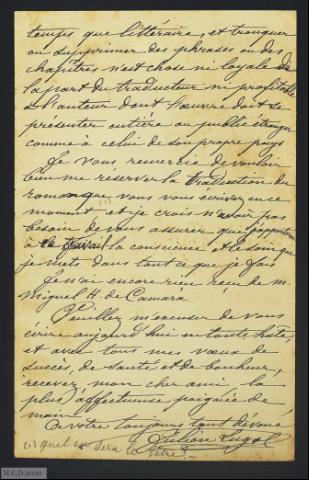 temps que littéraire, et tronquer
ou supprimer des phrases ou des
chapitres n'est chose ni loyale de
la part du traducteur ni profitable
à l'auteur dont l'œuvre doit se
présenter entière au public étranger
comme à celui de son propre pays
Je vous remercie de vouloir
bien me réserver la traduction du
roman que vous vous écrivez en ce
moment (1) et je crois n'avoir pas
besoin de vous assurer que j'apporterai
à ce travail la conscience et le soin que
je mets dans tout ce que je fais
Je n'ai encore rien reçu de M.
Miguel H. de Camara
Veuillez m'excuser de vous
écrire aujourd'hui en toute hâte,
et avec tous mes vœux de
succès, de santé et de bonheur,
recevez mon cher ami la
plus affectueuse poignée de
main
Votre toujours tout dévoué
Julien Lugol
(1) quel en sera le titre?
M.C.D.2020